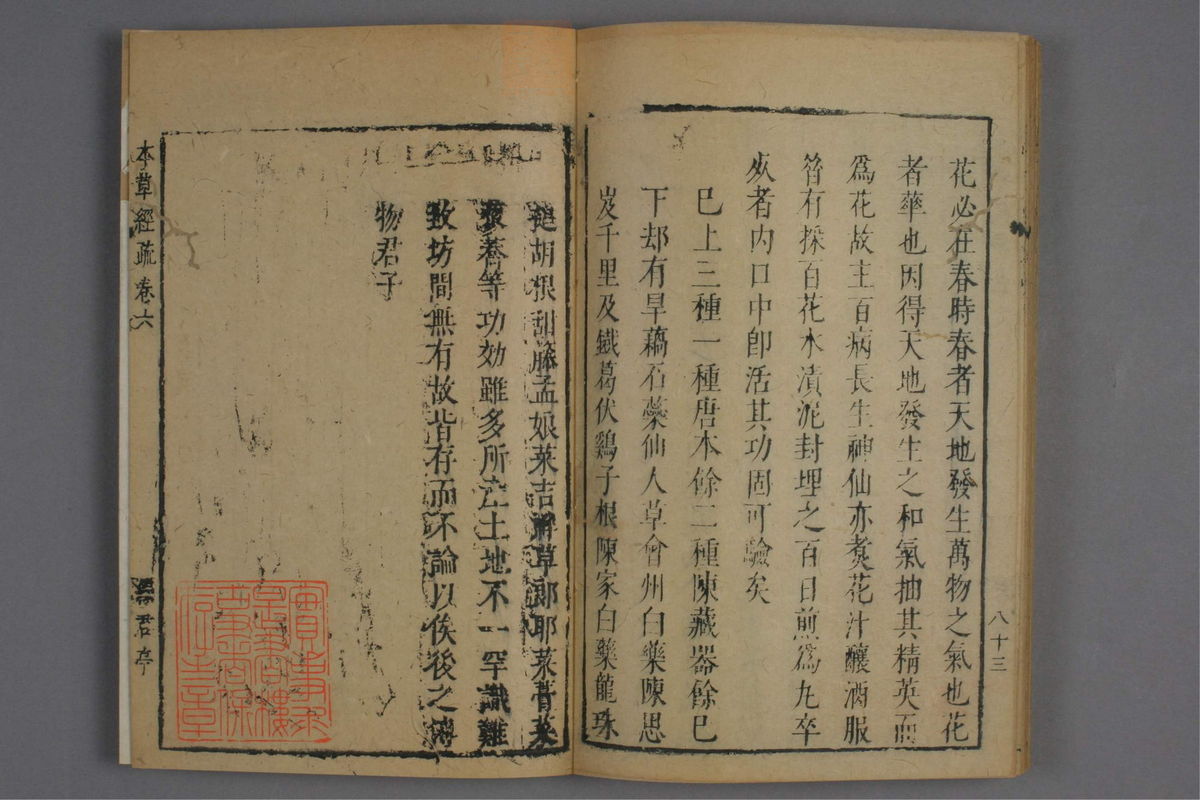 花必在春時春者天地發生萬物之氣也花
者華也因得天地發生之和氣抽其精英而
爲花故主百病長生神仙亦煮花汁釀酒服
昝有採百花水漬泥封埋之百日煎爲九卒
死者内口中卽活其功固可驗矣
巳上三種一種唐本餘二種陳藏器餘巳
下却有旱藕石蘂仙人草會州白藥陳思
岌千里及鐵葛伏鷄子根陳家白藥龍珠
胡根甜藤孟娘菜吉祥草郎耶菜膏菜
等功効雖多所產土地不一罕識難
致坊間無有故皆存而不論以俟後之博
物君子
八十三
本草經疏 卷六
君亭